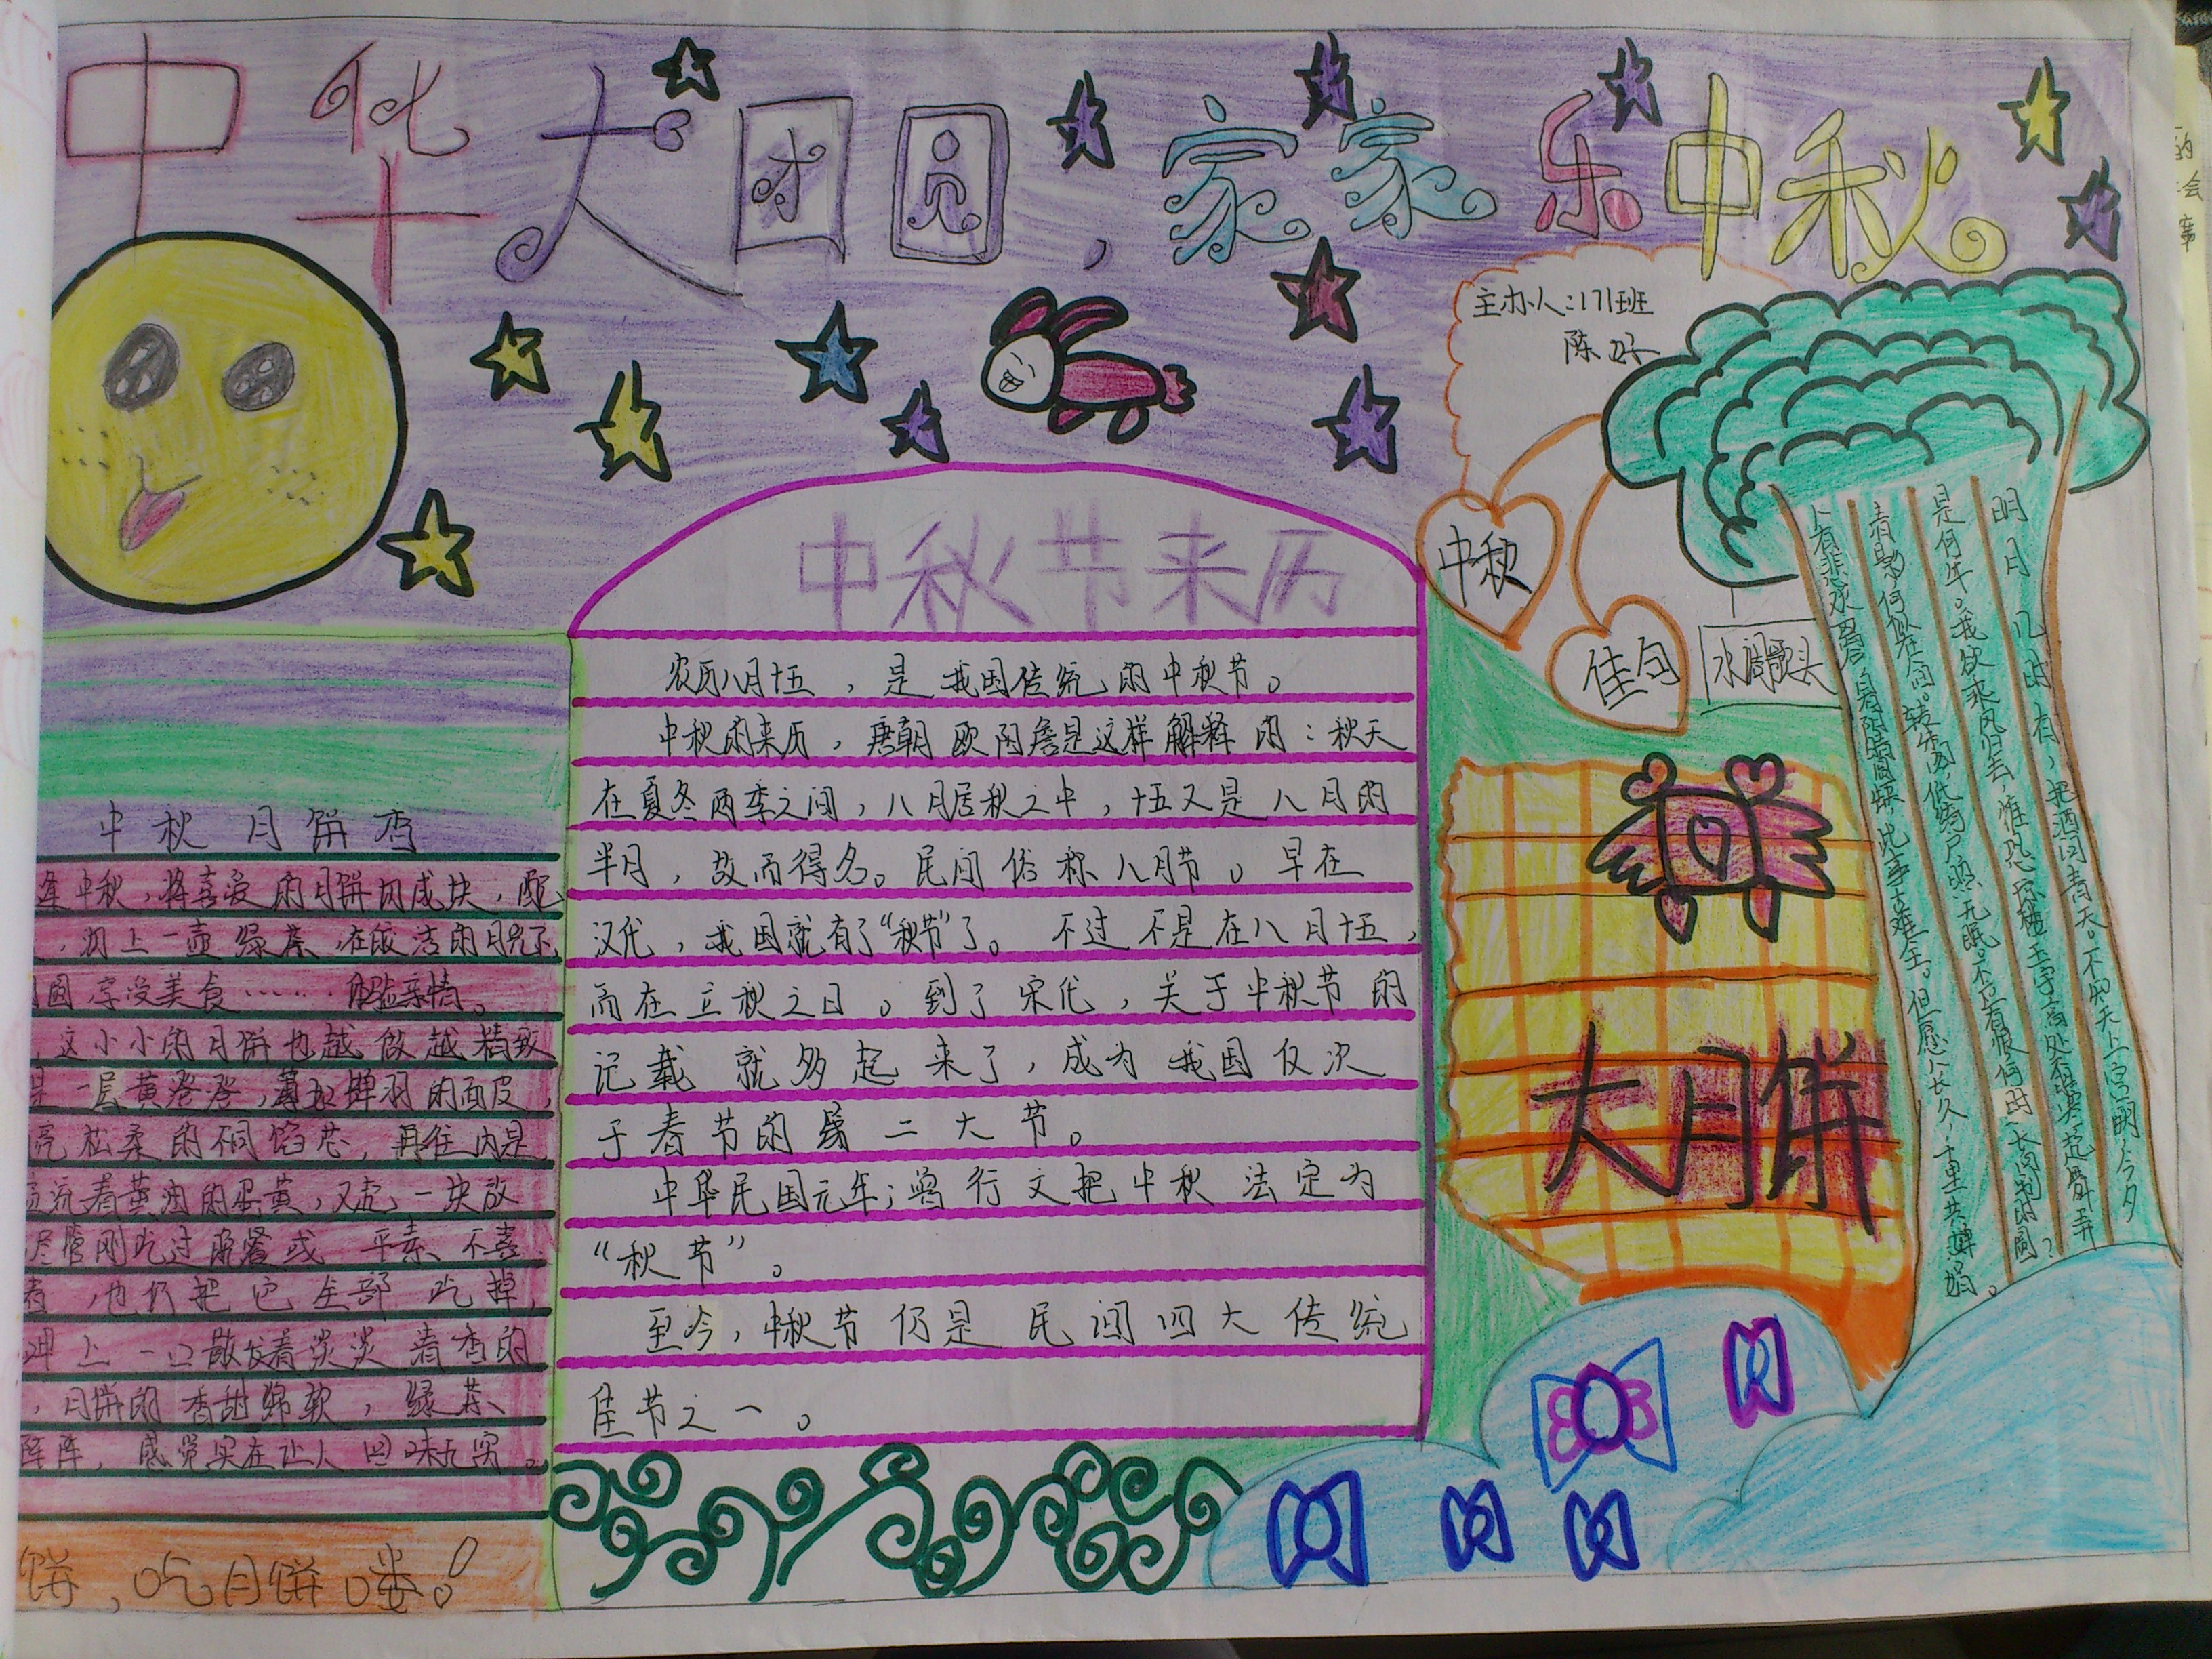 中华大团圆，家家乐中秋
主办人：171班
陈好
中秋
佳句
水调歌头
中秋节来历
农历八月十五，是我国传统的中秋节。
中秋的来历，唐朝欧阳詹是这样解释的：秋天
在夏冬两季之间，八月居秋之中，十五又是八月的
半月，故而得名。民间俗称八月节。早在
汉代，我国就有了“秋节”了。不过不是在八月十五，
而在立秋之日。到了宋代，关于中秋节的
记载就多起来了，成为我国仅次
于春节的第二大节。
中华民国元年；曾行文把中秋法定为
“秋节”。
至今，中秋节仍是民间四大传统
佳节之一。
中秋月饼香
逢中秋，将喜爱的月饼切成块，配
，沏上一壶绿茶，在皎洁的月光下
圆享受美食……体验亲情。
这小小的月饼也越做越精致
是一层黄澄澄，薄如蝉羽的面皮，
松柔的不同馅芯，再往内是
流着黄油的蛋黄，又是一块放
尽管刚吃过晚餐或平素、不喜
者，也仍把它全部吃掉，
呷上一口散发着淡淡清香的
，月饼的香甜绵软，绿茶
阵阵，感觉实在让人回味无穷。
饼，吃月饼喽！
大月饼
明月几时有，把酒问青天。不知天上宫阙，今夕
是何年。我欲乘风归去，惟恐琼楼玉宇，高处不胜寒，起舞弄
清影，何似在人间。转朱阁，低绮户，照无眠。不应有恨，何时长向别时圆？
人有悲欢离合，月有阴晴圆缺，此事古难全。但愿人长久，千里共婵娟。